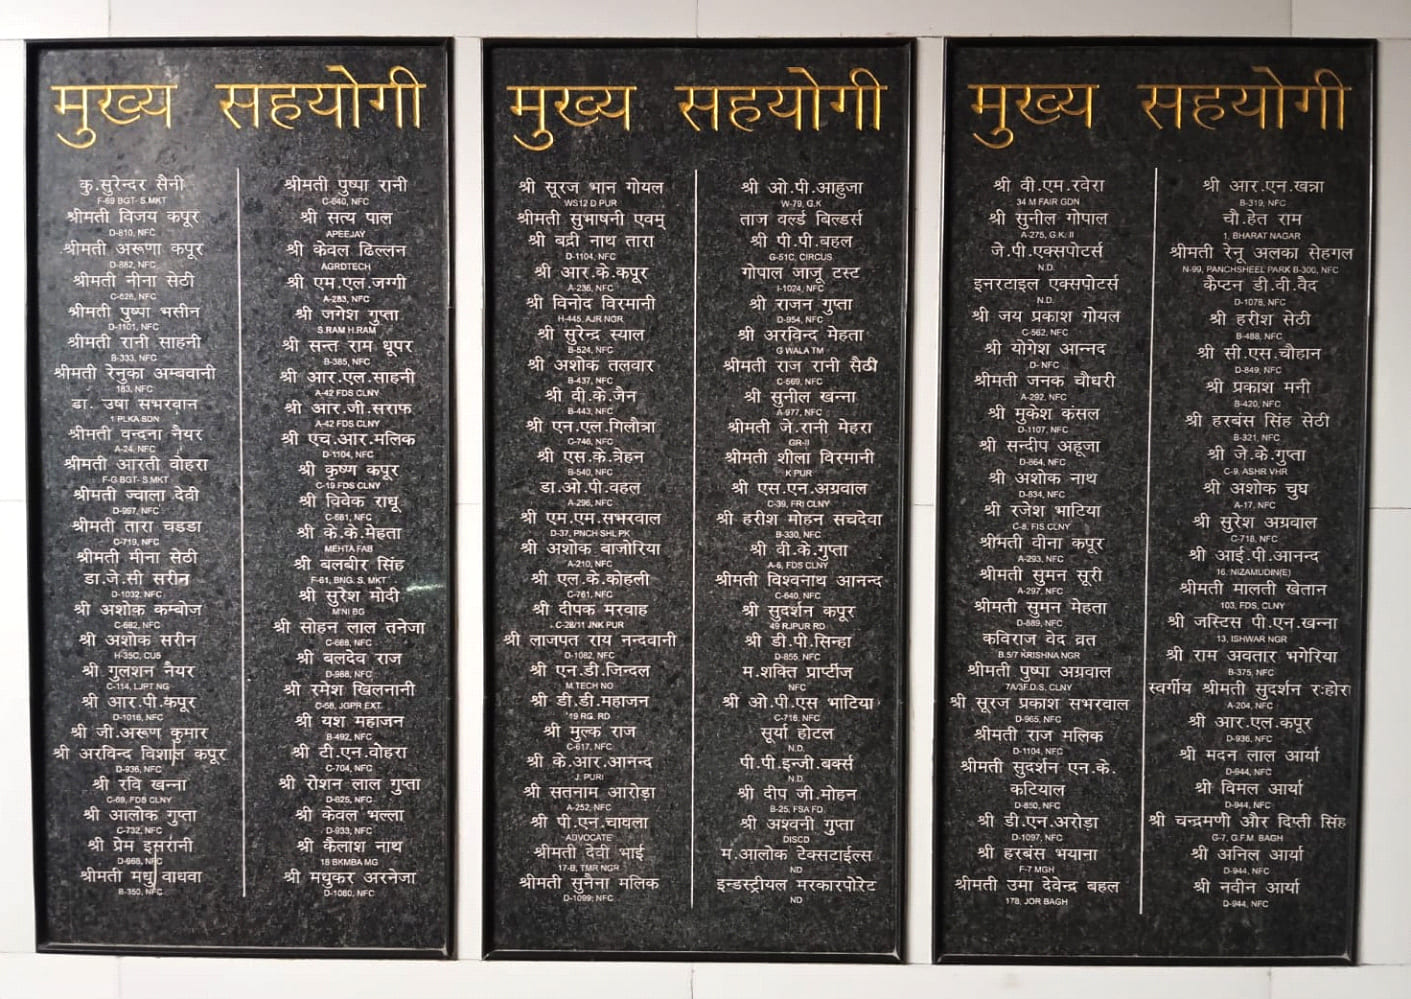 मुख्य सहयोगी
कु.सुरेन्दर सैनी
F-69 BGT- S.MKT
श्रीमती विजय कपूर
D-810, NFC
श्रीमती अरूणा कपूर
D-882, NFC
श्रीमती नीना सेठी
C-628, NFC
श्रीमती पुष्पा भसीन
D-1101, NFC
श्रीमती रानी साहनी
B-333, NFC
श्रीमती रेनुका अम्बवानी
183, NFC
डा. उषा सभरवान
1 PLKA SDN
श्रीमती वन्दना नैयर
A-24, NFC
श्रीमती आरती वोहरा
F-G BGT- S.MKT
श्रीमती ज्वाला देवी
D-997, NFC
श्रीमती तारा चडडा
C-719, NFC
श्रीमती मीना सेठी
डा.जे.सी सरीन
D-1032, NFC
श्री अशोक कम्बोज
C-682, NFC
श्री अशोक सरीन
H-35C, CUS
श्री गुलशन नैयर
C-114, LJPT NG
श्री आर.पी.कपूर
D-1016, NFC
श्री जी.अरूण कुमार
श्री अरविन्द विशाल कपूर
D-936, NFC
श्री रवि खन्ना
C-69, FDS CLNY
श्री आलोक गुप्ता
C-732, NFC
श्री प्रेम इसरानी
D-968, NFC
श्रीमती मधु वाधवा
B-350, NFC
श्रीमती पुष्पा रानी
C-640, NFC
श्री सत्य पाल
APEEJAY
श्री केवल ढिल्लन
AGRDTECH
श्री एम.एल.जग्गी
A-283, NFC
श्री जगेश गुप्ता
S.RAM H.RAM
श्री सन्त राम धूपर
B-385, NFC
श्री आर.एल.साहनी
A-42 FDS CLNY
श्री आर.जी.सराफ
A-42 FDS CLNY
श्री एच.आर.मलिक
D-1104, NFC
श्री कृष्ण कपूर
C-19 FDS CLNY
श्री विवेक राधू
C-681, NFC
श्री के.के.मेहता
MEHTA FAB
श्री बलबीर सिंह
F-61, BNG. S. MKT
श्री सुरेश मोदी
M'NI BG
श्री सोहन लाल तनेजा
C-688, NFC
श्री बलदेव राज
D-988, NFC
श्री रमेश खिलनानी
C-58, JGPR EXT.
श्री यश महाजन
B-492, NFC
श्री टी.एन.वोहरा
C-704, NFC
श्री रोशन लाल गुप्ता
D-825, NFC
श्री केवल भल्ला
D-933, NFC
श्री कैलाश नाथ
18 BKMBA MG
श्री मधुकर अरनेजा
D-1080, NFC
मुख्य सहयोगी
श्री सूरज भान गोयल
WS12 D PUR
श्रीमती सुभाषनी एवम्
श्री बद्री नाथ तारा
D-1104, NFC
श्री आर.के.कपूर
A-236, NFC
श्री विनोद विरमानी
H-445, AJR NGR
श्री सुरेन्द्र स्याल
B-524, NFC
श्री अशोक तलवार
B-437, NFC
श्री वी.के.जैन
B-443, NFC
श्री एन.एल.गिलौत्रा
C-746, NFC
श्री एस.के.त्रेहन
B-540, NFC
डा.ओ.पी.वहल
A-296, NFC
श्री एम.एम.सभरवाल
D-37, PNCH SHL PK
श्री अशोक बाजोरिया
A-210, NFC
श्री एल.के.कोहली
C-761, NFC
श्री दीपक मरवाह
C-28/11 JNK PUR
श्री लाजपत राय नन्दवानी
D-1082, NFC
श्री एन.डी.जिन्दल
M.TECH NO
श्री डी.डी.महाजन
19 RG. RD
श्री मुल्क राज
C-617, NFC
श्री के.आर.आनन्द
J. PURI
श्री सतनाम आरोड़ा
A-252, NFC
श्री पी.एन.चावला
ADVOCATE
श्रीमती देवी भाई
17-B, TMR NGR
श्रीमती सुनैना मलिक
D-1099, NFC
श्री ओ.पी.आहुजा
W-79, G.K
ताज वर्ल्ड बिल्डर्स
श्री पी.पी.बहल
G-51C, CIRCUS
गोपाल जाजू टस्ट
I-1024, NFC
श्री राजन गुप्ता
D-954, NFC
श्री अरविन्द मेहता
G WALA TM
श्रीमती राज रानी सैठी
C-569, NFC
श्री सुनील खन्ना
A-977, NFC
श्रीमती जे.रानी मेहरा
GR-II
श्रीमती शीला विरमानी
K PUR
श्री एस.एन.अग्रवाल
C-39, FRI CLNY
श्री हरीश मोहन सचदेवा
B-330, NFC
श्री वी.के.गुप्ता
A-6, FDS CLNY
श्रीमती विश्वनाथ आनन्द
C-640, NFC
श्री सुदर्शन कपूर
49 RJPUR RD
श्री डी.पी.सिन्हा
D-855, NFC
म.शक्ति प्रार्प्टीज
NFC
श्री ओ.पी.एस भाटिया
C-716, NFC
सूर्या होटल
N.D.
पी.पी.इन्जी.बर्क्स
N.D.
श्री दीप जी.मोहन
B-25, FSA FD.
श्री अश्वनी गुप्ता
DISCD
म.आलोक टेक्सटाईल्स
ND
इन्डस्ट्रीयल मरकारपोरेट
ND
मुख्य सहयोगी
श्री वी.एम.रवेरा
34 M FAIR GDN
श्री सुनील गोपाल
A-275, G.K. II
जे.पी.एक्सपोटर्स
N.D.
इनरटाइल एक्सपोटर्स
N.D.
श्री जय प्रकाश गोयल
C-562, NFC
श्री योगेश आन्नद
D- NFC
श्रीमती जनक चौधरी
A-292, NFC
श्री मुकेश कंसल
D-1107, NFC
श्री सन्दीप अहूजा
D-864, NFC
श्री अशोक नाथ
D-834, NFC
श्री रजेश भाटिया
C-8, FIS CLNY
श्रीमती वीना कपूर
A-293, NFC
श्रीमती सुमन सूरी
A-297, NFC
श्रीमती सुमन मेहता
D-889, NFC
कविराज वेद व्रत
B.5/7 KRISHNA NGR
श्रीमती पुष्पा अग्रवाल
7A/3F.D.S, CLNY
श्री सूरज प्रकाश सभरवाल
D-965, NFC
श्रीमती राज मलिक
D-1104, NFC
श्रीमती सुदर्शन एन.के.
कटियाल
D-850, NFC
श्री डी.एन.अरोड़ा
D-1097, NFC
श्री हरबंस भयाना
F-7 MGH
श्रीमती उमा देवेन्द्र बहल
178, JOR BAGH
श्री आर.एन.खन्ना
B-319, NFC
चौ.हेत राम
1, BHARAT NAGAR
श्रीमती रेनू अलका सेहगल
N-99, PANCHSHEEL PARK B-300, NFC
कैप्टन डी.वी.वैद
D-1078, NFC
श्री हरीश सेठी
B-488, NFC
श्री सी.एस.चौहान
D-849, NFC
श्री प्रकाश मनी
B-420, NFC
श्री हरबंस सिंह सेठी
B-321, NFC
श्री जे.के.गुप्ता
C-9, ASHR VHR
श्री अशोक चुघ
A-17, NFC
श्री सुरेश अग्रवाल
C-718, NFC
श्री आई.पी.आनन्द
16, NIZAMUDIN(E)
श्रीमती मालती खेतान
103, FDS, CLNY
श्री जस्टिस पी.एन.खन्ना
13, ISHWAR NGR
श्री राम अवतार भगेरिया
B-375, NFC
स्वर्गीय श्रीमती सुदर्शन
A-204, NFC
श्री आर.एल.कपूर
D-936, NFC
श्री मदन लाल आर्या
D-944, NFC
श्री विमल आर्या
D-944, NFC
श्री चन्द्रमणी और दिप्ती सिंह
G-7, G.F.M. BAGH
श्री अनिल आर्या
D-944, NFC
श्री नवीन आर्या
D-944, NFC